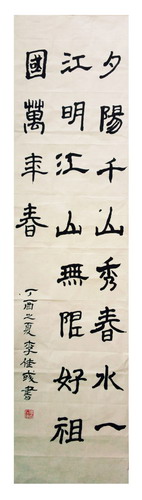 夕陽千山秀春水一
江明江山無限好祖
國萬年春
丁酉之夏李俊成書